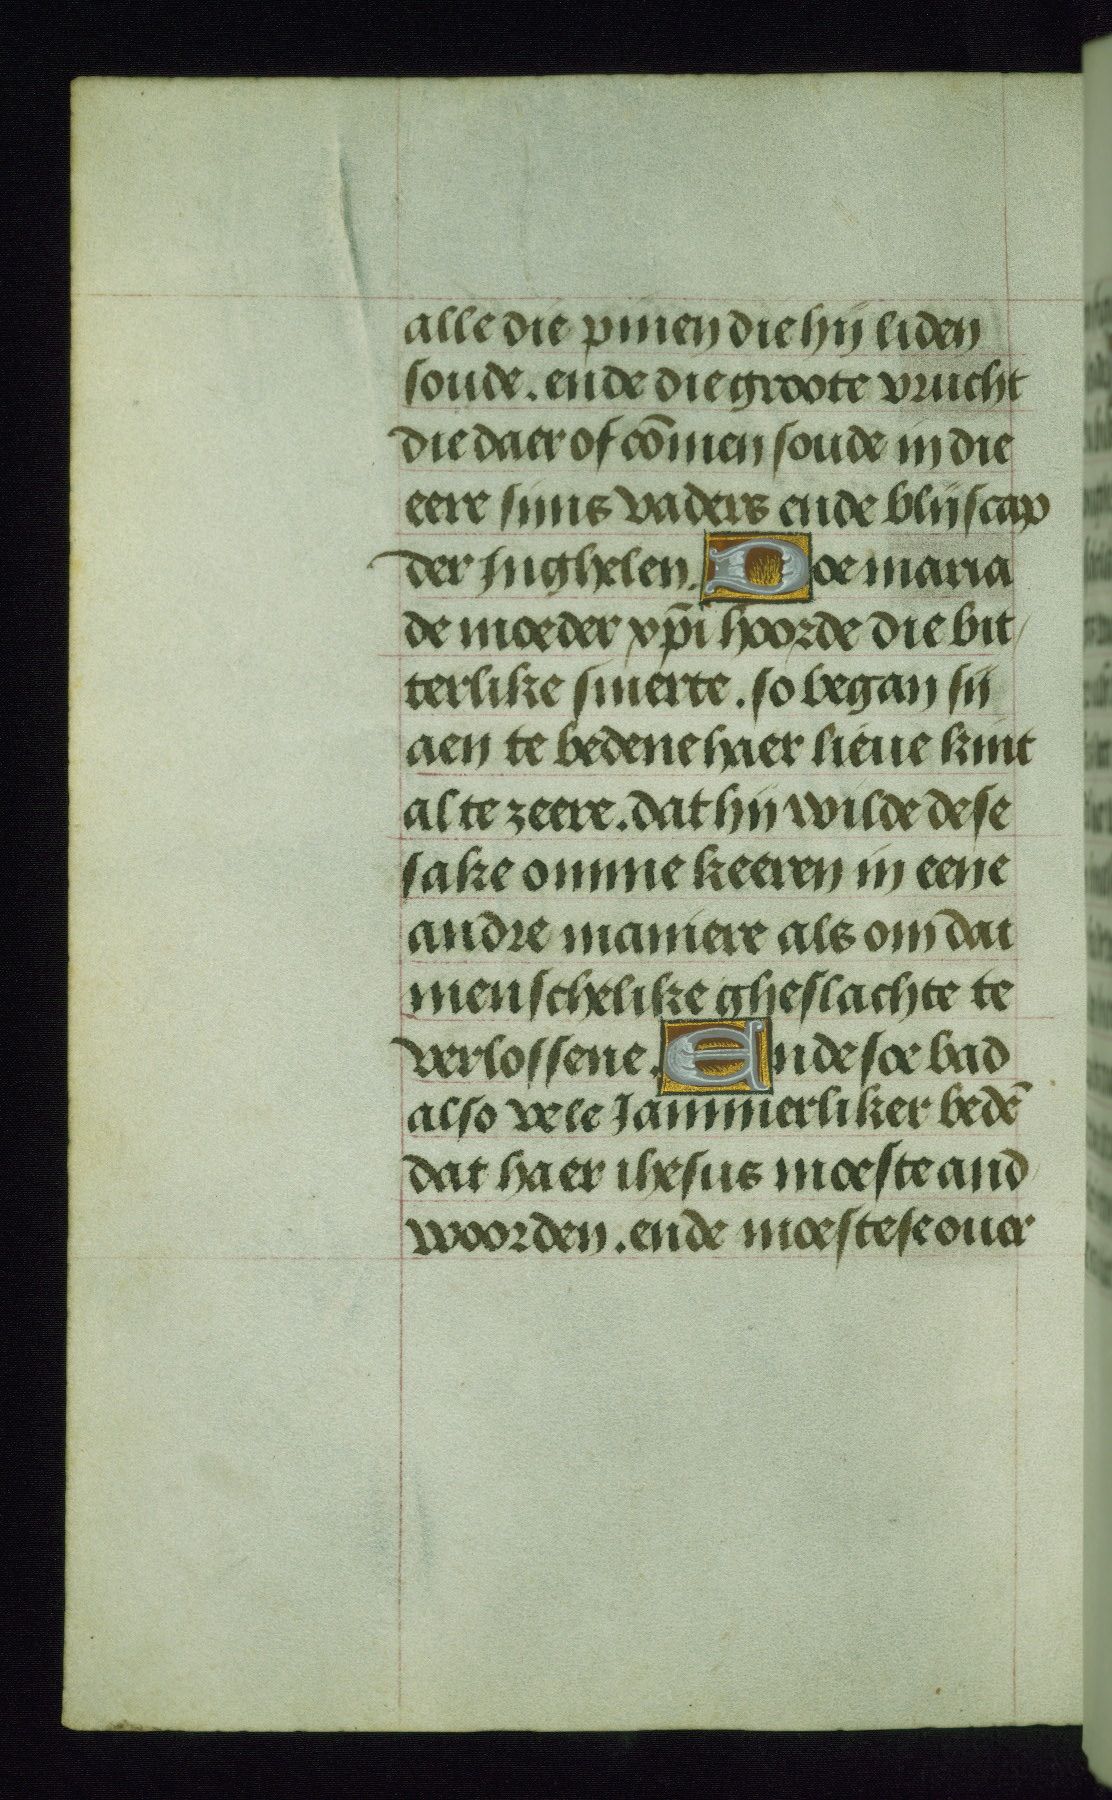 alle die pinen die hij liden
soude. ende die groote vrucht
die daer of cōmen soude in die
eere sijns vaders ende blijscap
der Jnghelen. Doe maria
de moeder xp̄i hoorde die bit/
terlike smerte. so began sij
aen te bedene haer lieue kint
al te zeere. dat hij wilde dese
sake omme keeren in eene
andre maniere als om dat
menschelike gheslachte te
verlossene. Ende soe bad
also vele Jammerliker bedē
dat haer ihesus moeste and
woorden. ende moestese ouer